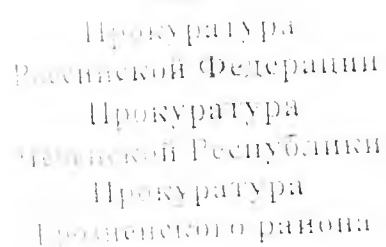 Прокуратура
Российской Федерации
Прокуратура
Чеченской Республики
Прокуратура
Грозненского района